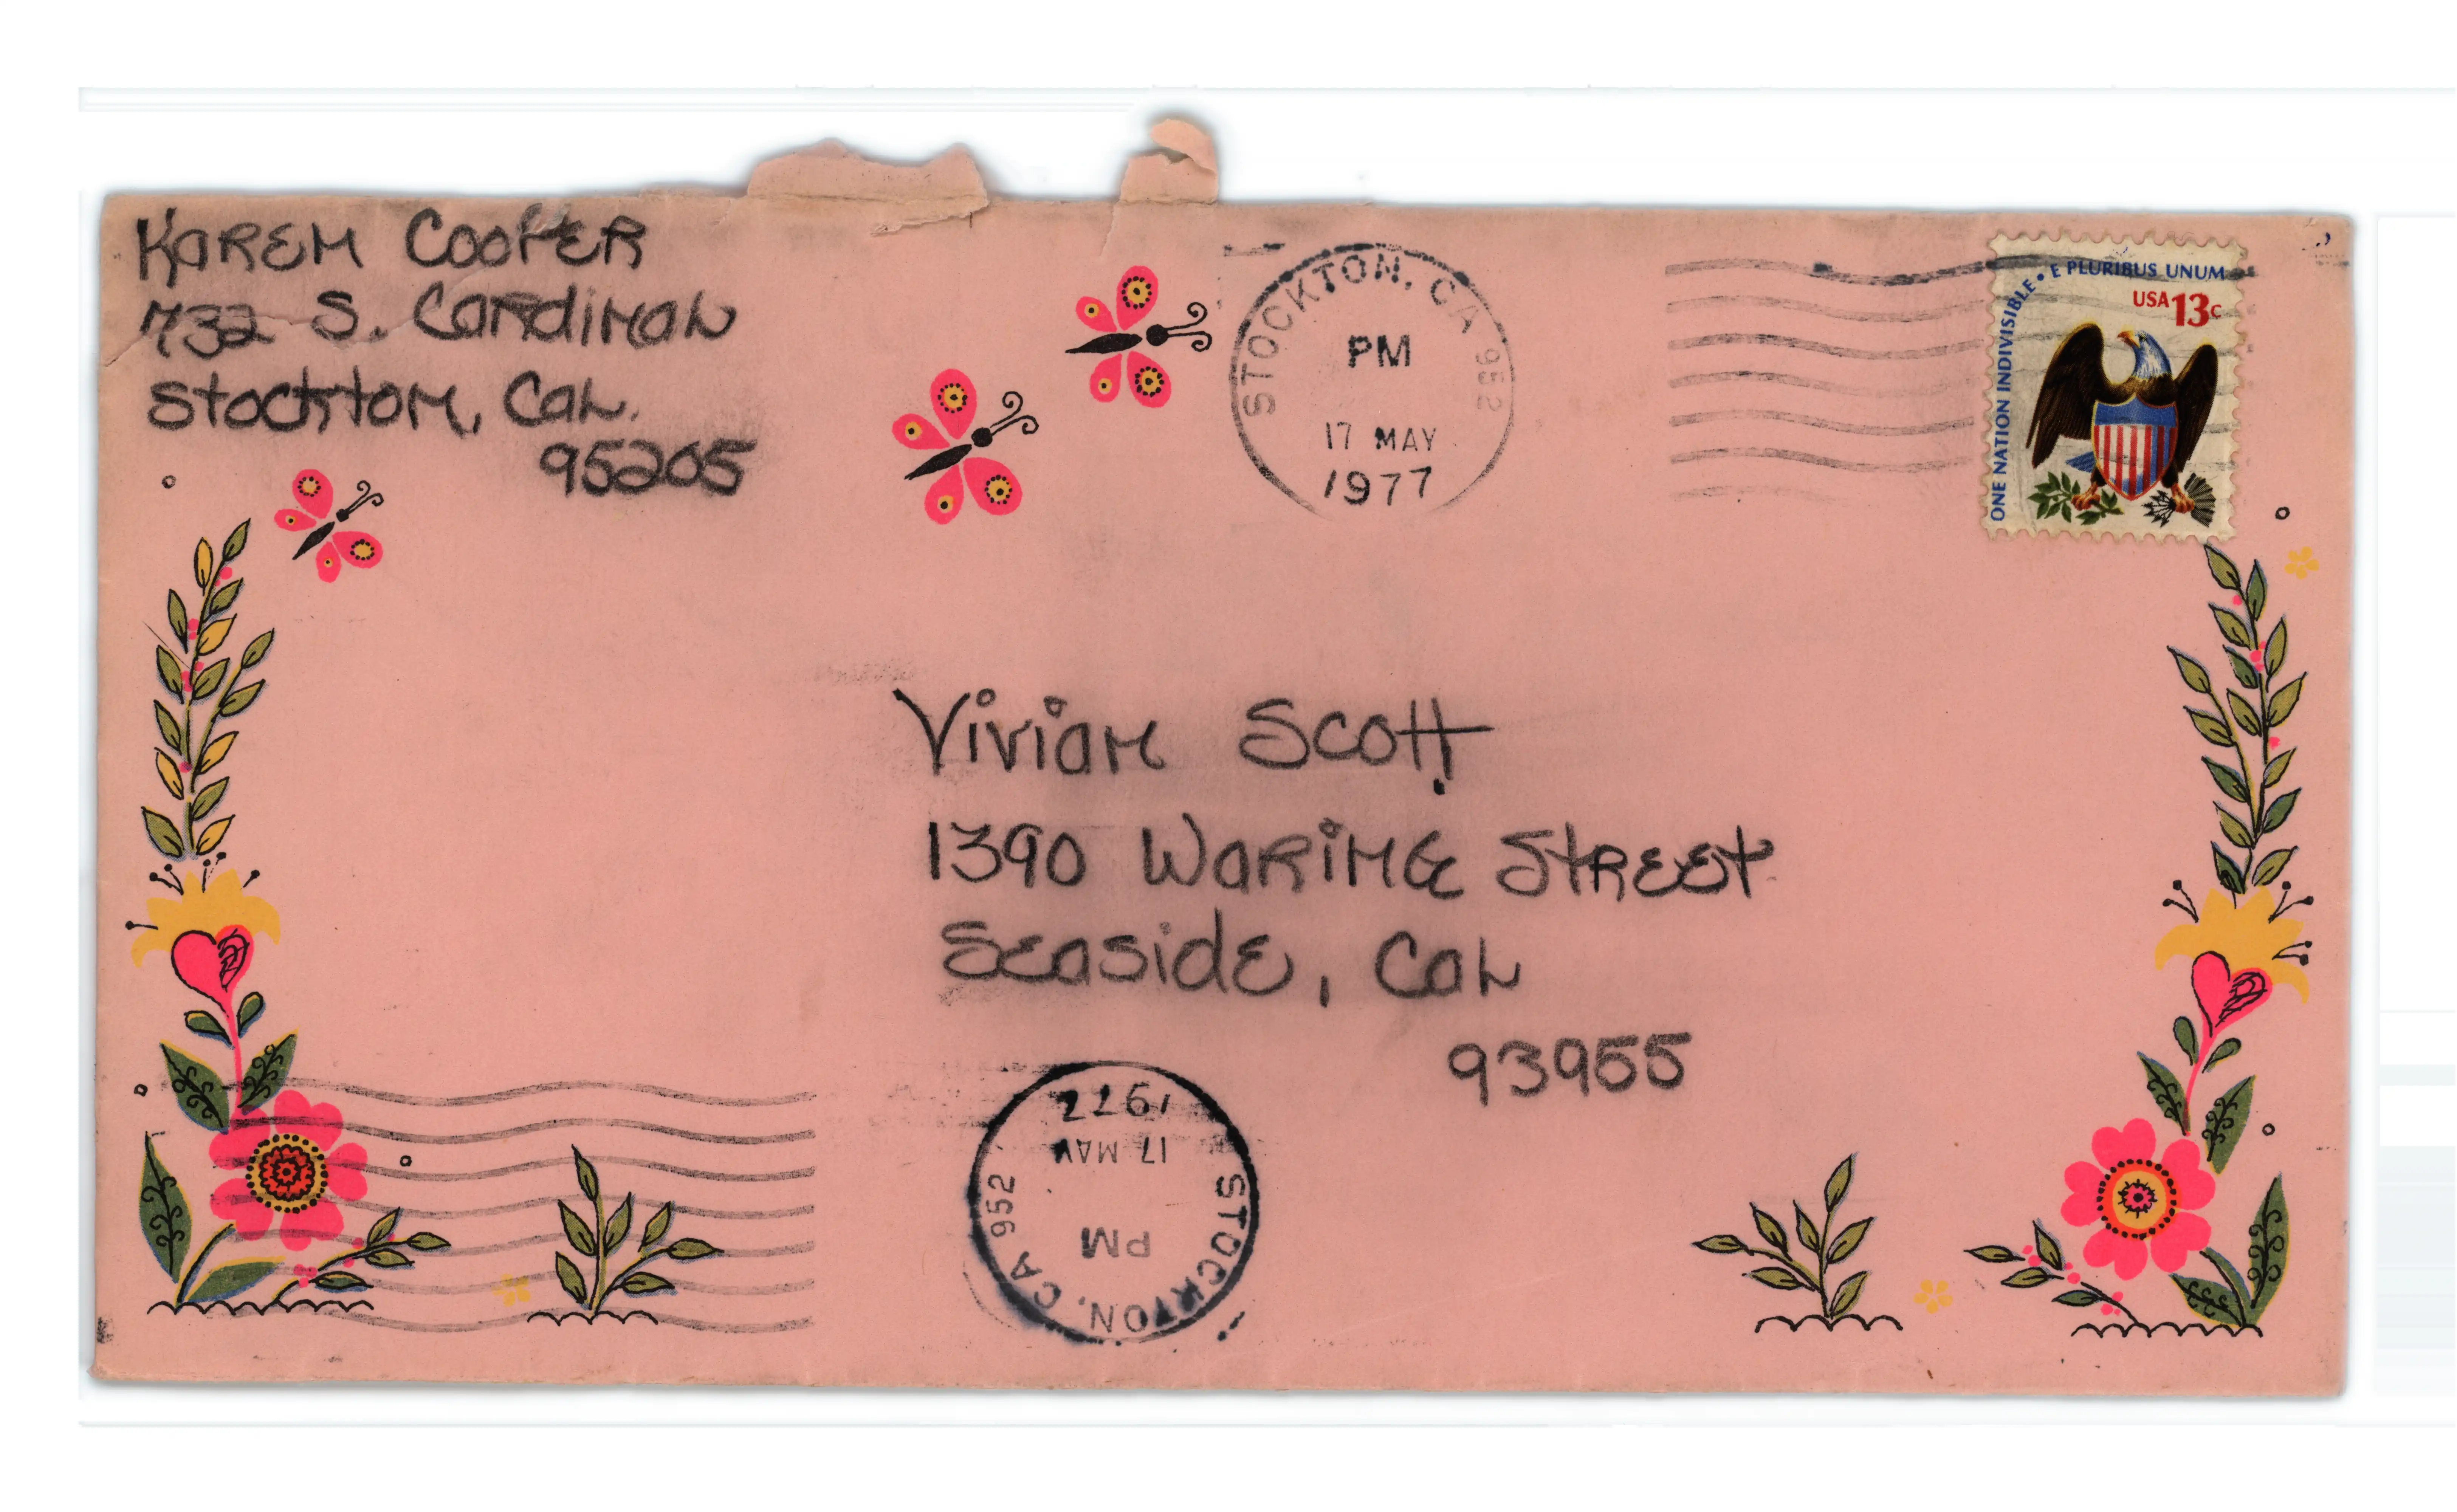 Karen Cooper
732 S. Cardinal
Stockton, Cal.
95205
STOCKTON, CA 952
PM
17 MAY
1977
ONE NATION INDIVISIBLE • E PLURIBUS UNUM
USA 13c
Vivian Scott
1390 Waring Street
Seaside, Cal
93955
STOCKTON, CA 952
PM
17 MAY
1977